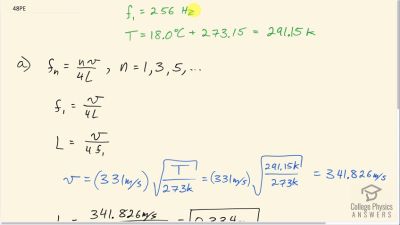 48PE
f₁ = 256 Hz
T = 18.0°C + 273.15 = 291.15 k
a) fₙ = nv/4L , n = 1, 3, 5, ...
f₁ = v/4L
L = v/4f₁
v = (331 m/s) √(T/273k) = (331 m/s) √(291.15k/273k) = 341.826 m/s
341.826 m/s
College Physics
ANSWERS